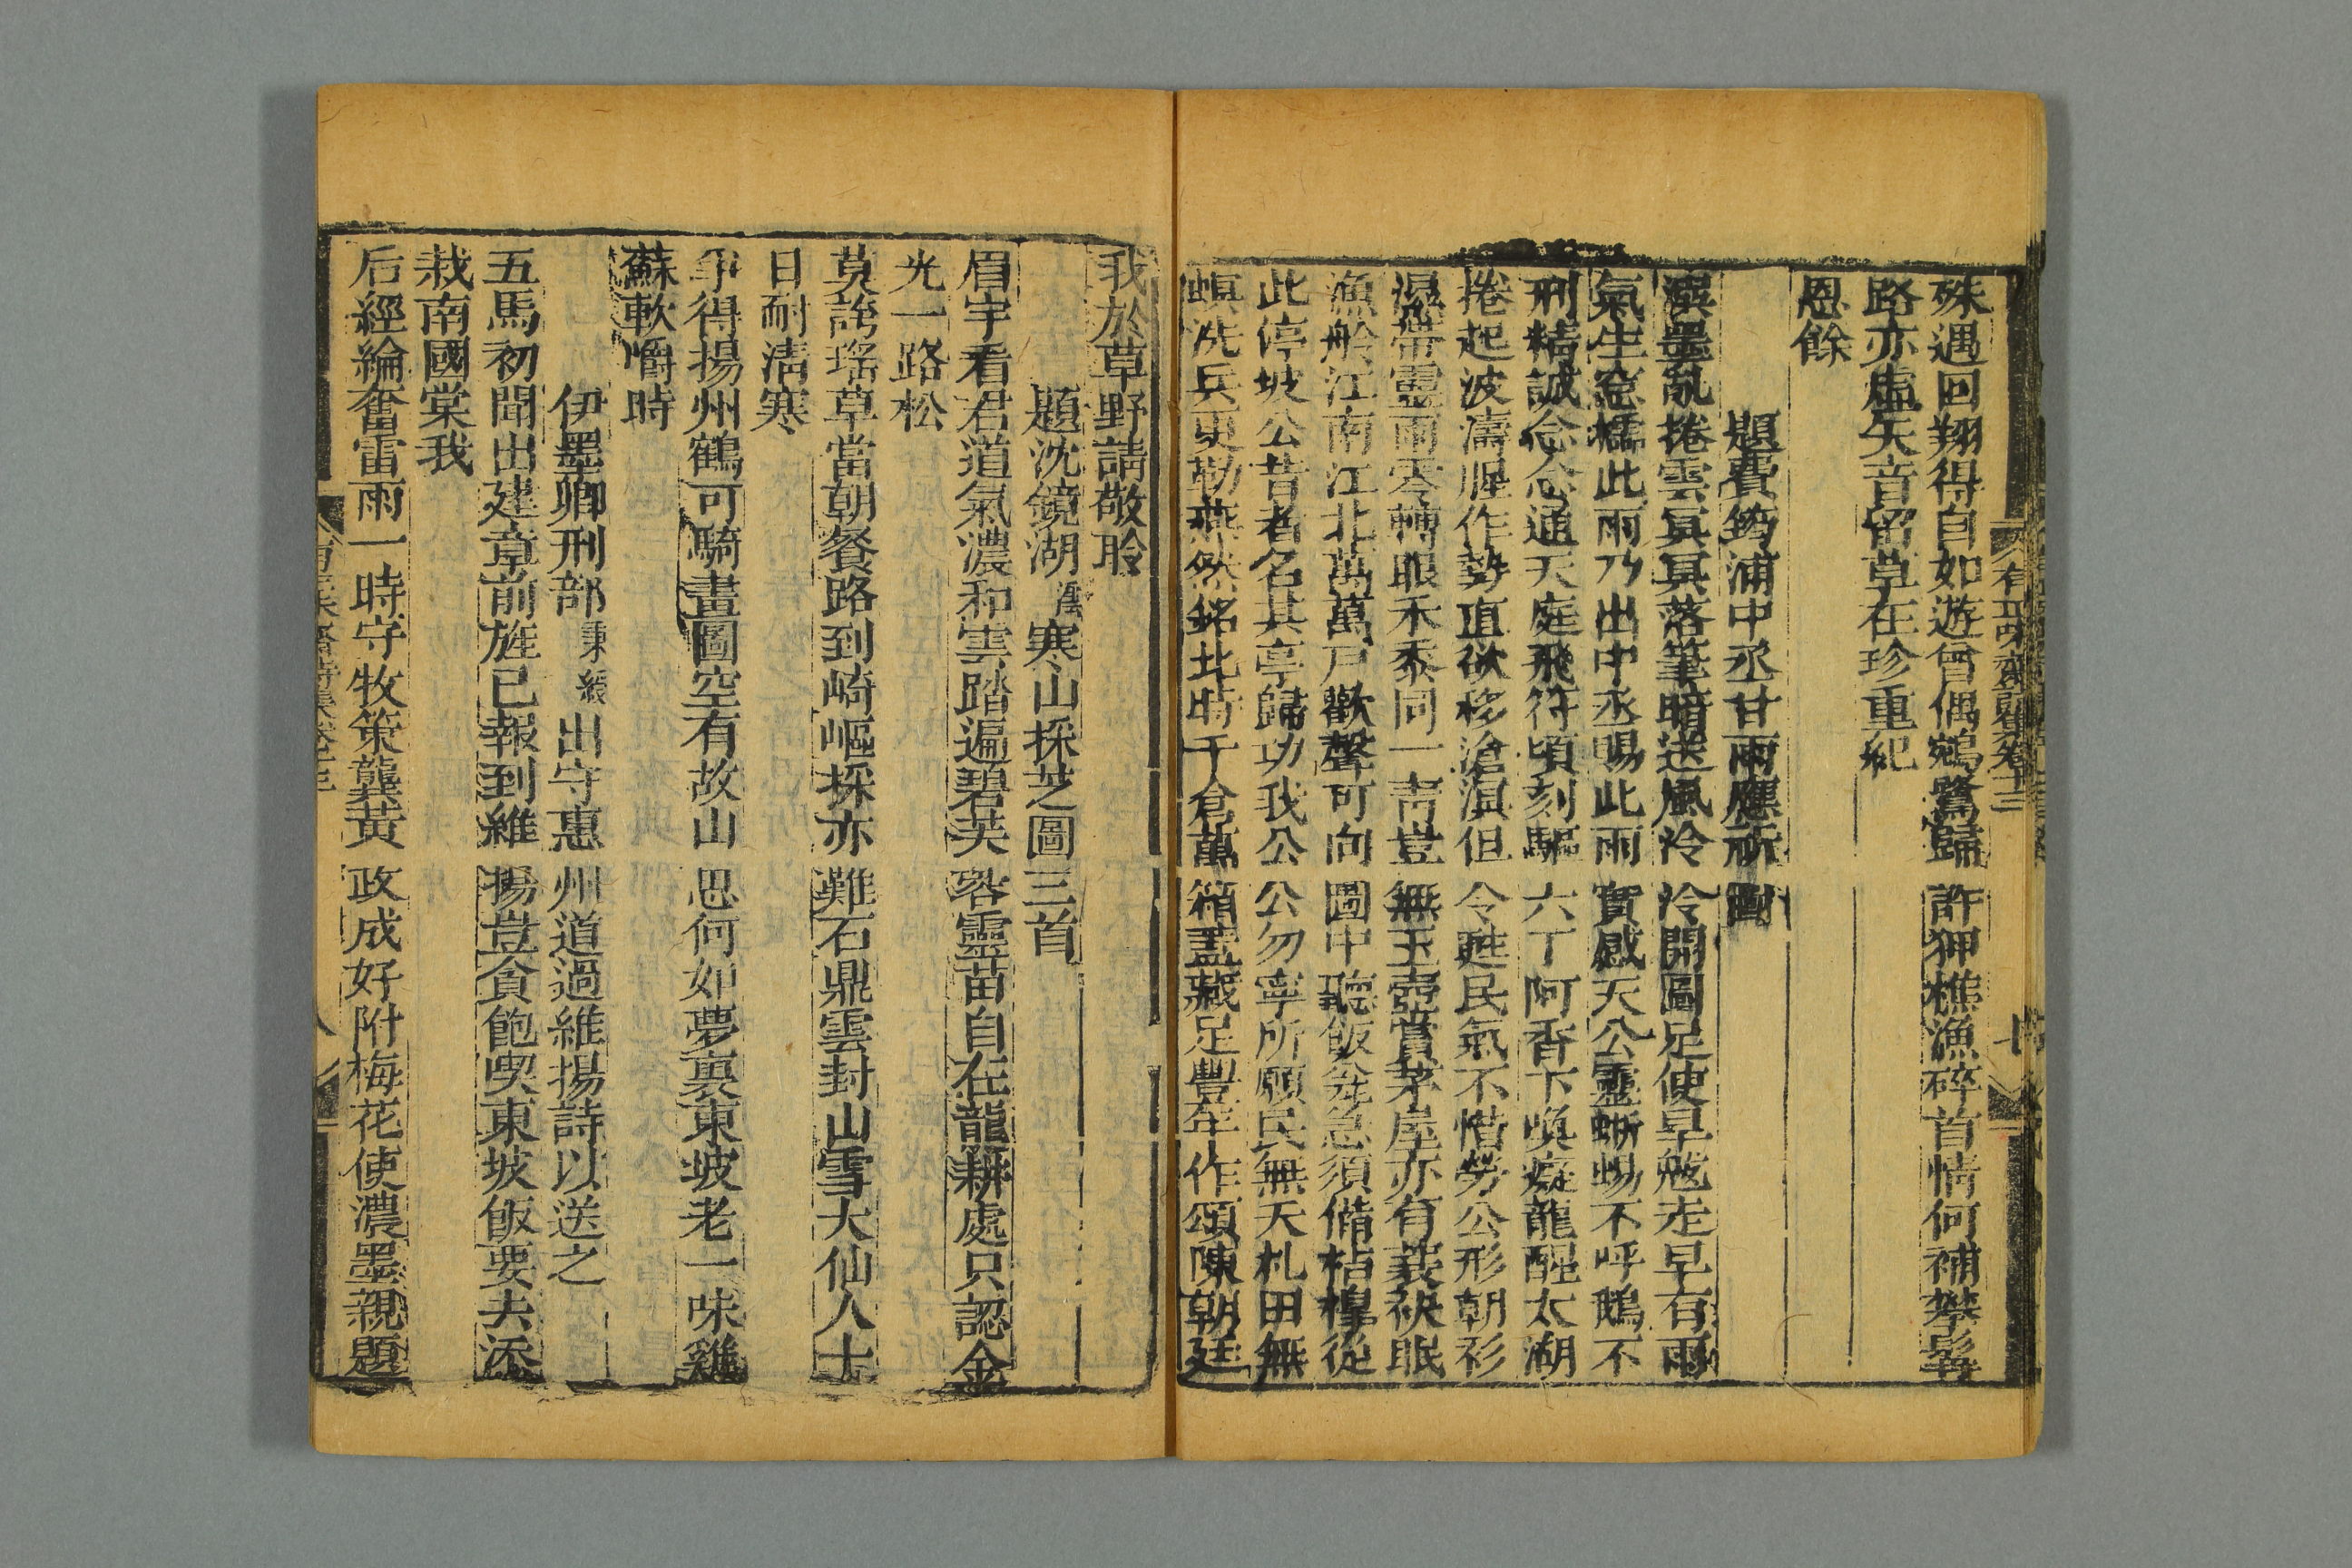 殊遇回翔得自如遊曾偶鵷鷺歸許狎樵漁碎首情何補攀髯
路亦虛矢音留草在珍重紀
恩餘
題費筠浦中丞甘雨應祈圖
潑墨亂捲雲冥冥落筆暗送風泠泠開圖足使旱魃走早有雨
氣生窓櫺此雨乃出中丞賜此雨實感天公靈蜥蜴不呼鵝不
刑精誠念念通天庭飛符頃刻驅六丁阿香下喚癡龍醒太湖
捲起波濤腥作勢直欲移滄溟但令甦民氣不惜勞公形朝衫
濕帶靈雨零轉眼禾黍同一青豈無玉壺賞茅屋亦有蓑袂眠
漁舲江南江北萬萬戶歡聲可向圖中聽飯舟急須備枯槹從
此停坡公昔者名其亭歸功我公公勿寧所願民無天札田無
螟洗兵更勒燕然銘北時千倉萬箱蓋藏足豐年作頌陳朝廷
我於草野請敬聆
題沈鏡湖寒山採芝圖三首
眉宇看君道氣濃和雲踏遍碧芙蓉靈苗自在龍耕處只認金
光一路松
莫誇瑤草當朝餐路到崎嶇採亦難石鼎雲封山雪大仙人十
日耐清寒
爭得揚州鶴可騎畫圖空有故山思何如夢裏東坡老一味雞
蘇軟嚼時
伊墨卿刑部秉綬出守惠州道過維揚詩以送之
五馬初聞出建章前旌已報到維揚豈貪飽喫東坡飯要去添
栽南國棠我
后經綸奮雷雨一時守牧策龔黃政成好附梅花使濃墨親題